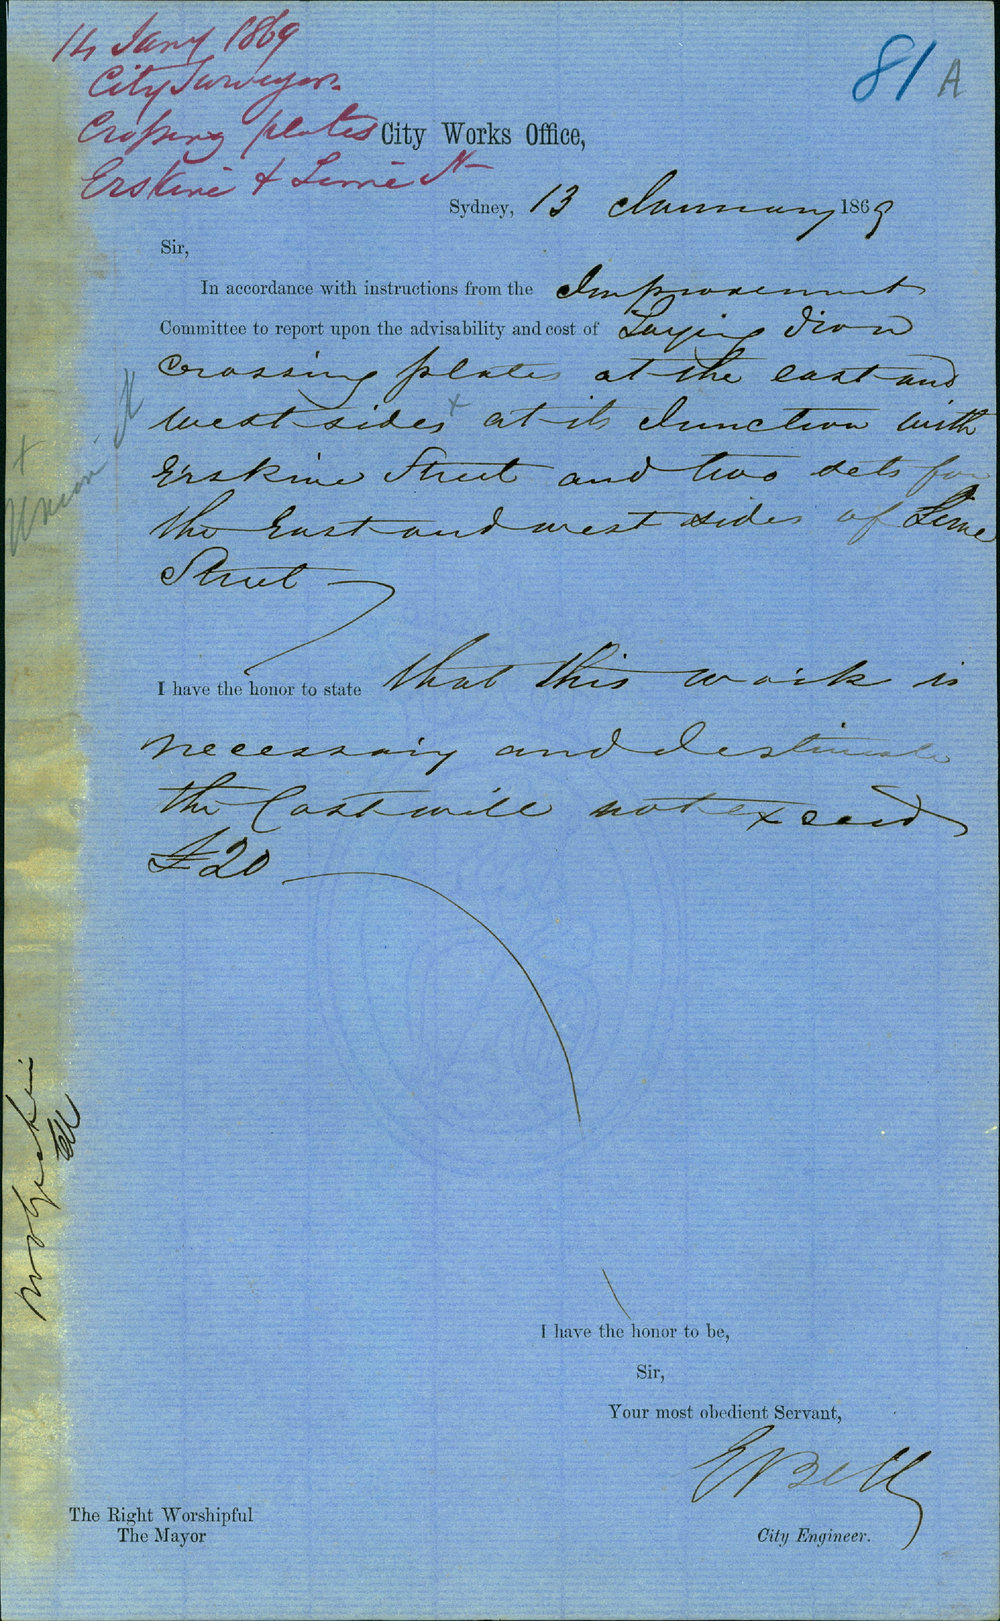 14 Jany 1869
City Surveyor
Crossing plates
Erskine & Lime St
81 A
City Works Office,
Sydney, 13 January 1869
Sir,
In accordance with instructions from the Improvement
Committee to report upon the advisability and cost of Laying Iron
Crossing plates at the east and
west sides x at its Junction with
Erskine Street and two sets for
the East and west sides of Lime
Street
x
Union St
I have the honor to state that this work is
necessary and I estimate
the Cost will not exceed
£20
I have the honor to be,
Sir,
Your most obedient Servant,
E Bell
City Engineer.
The Right Worshipful
The Mayor